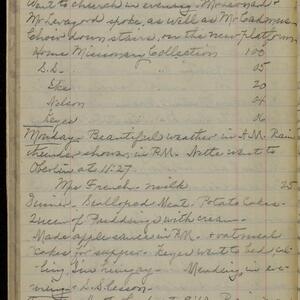 Went to church in evening. Mr Leonard &
Mr Levagood spoke, as well as Mr Cadmus.
Choir down stairs, on the new platform
Home Missionary Collection 100
S.S. 05
20
Nelson 24
Monday - Beautiful weather in A.M. Rain
thunder shower, in P.M. went to
Oberlin at 11:27.
Mr French - milk 25
Dinner - Scalloped Meat - Potato Cakes -
Queen of Puddings with cream -
Made apple sauce in P.M. & oatmeal
cakes for supper. went to bed,
Mending in eve-
ning. S.S. Lesson.